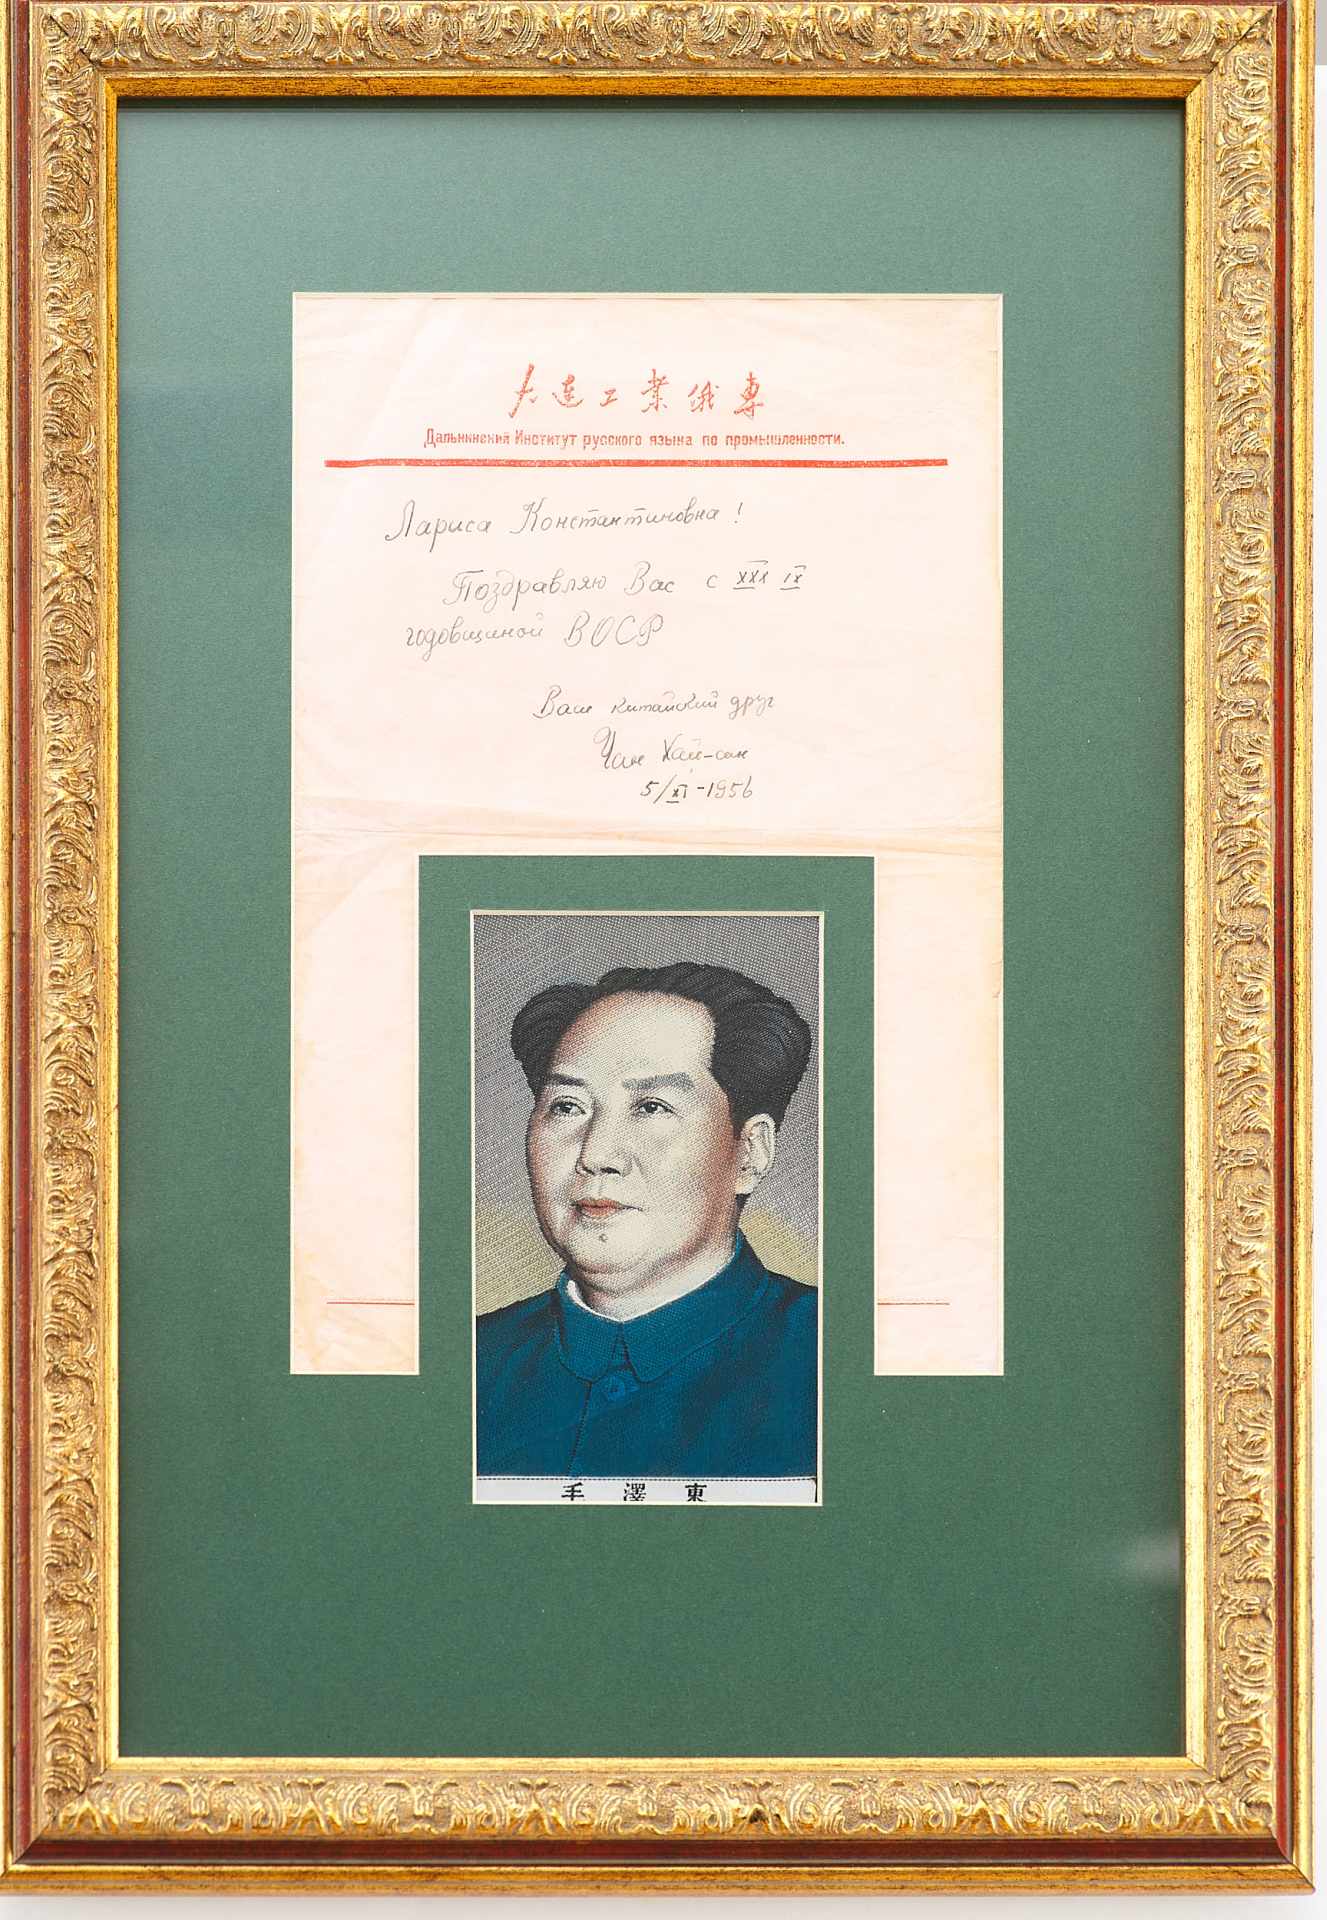 大连工業俄專
Дальнинский Институт русского языка по промышленности.
Лариса Константиновна!
Поздравляю Вас с XXX IX
годовщиной ВОСР
Ваш китайский друг
Чан Хай-сан
5/XI-1956
毛澤東